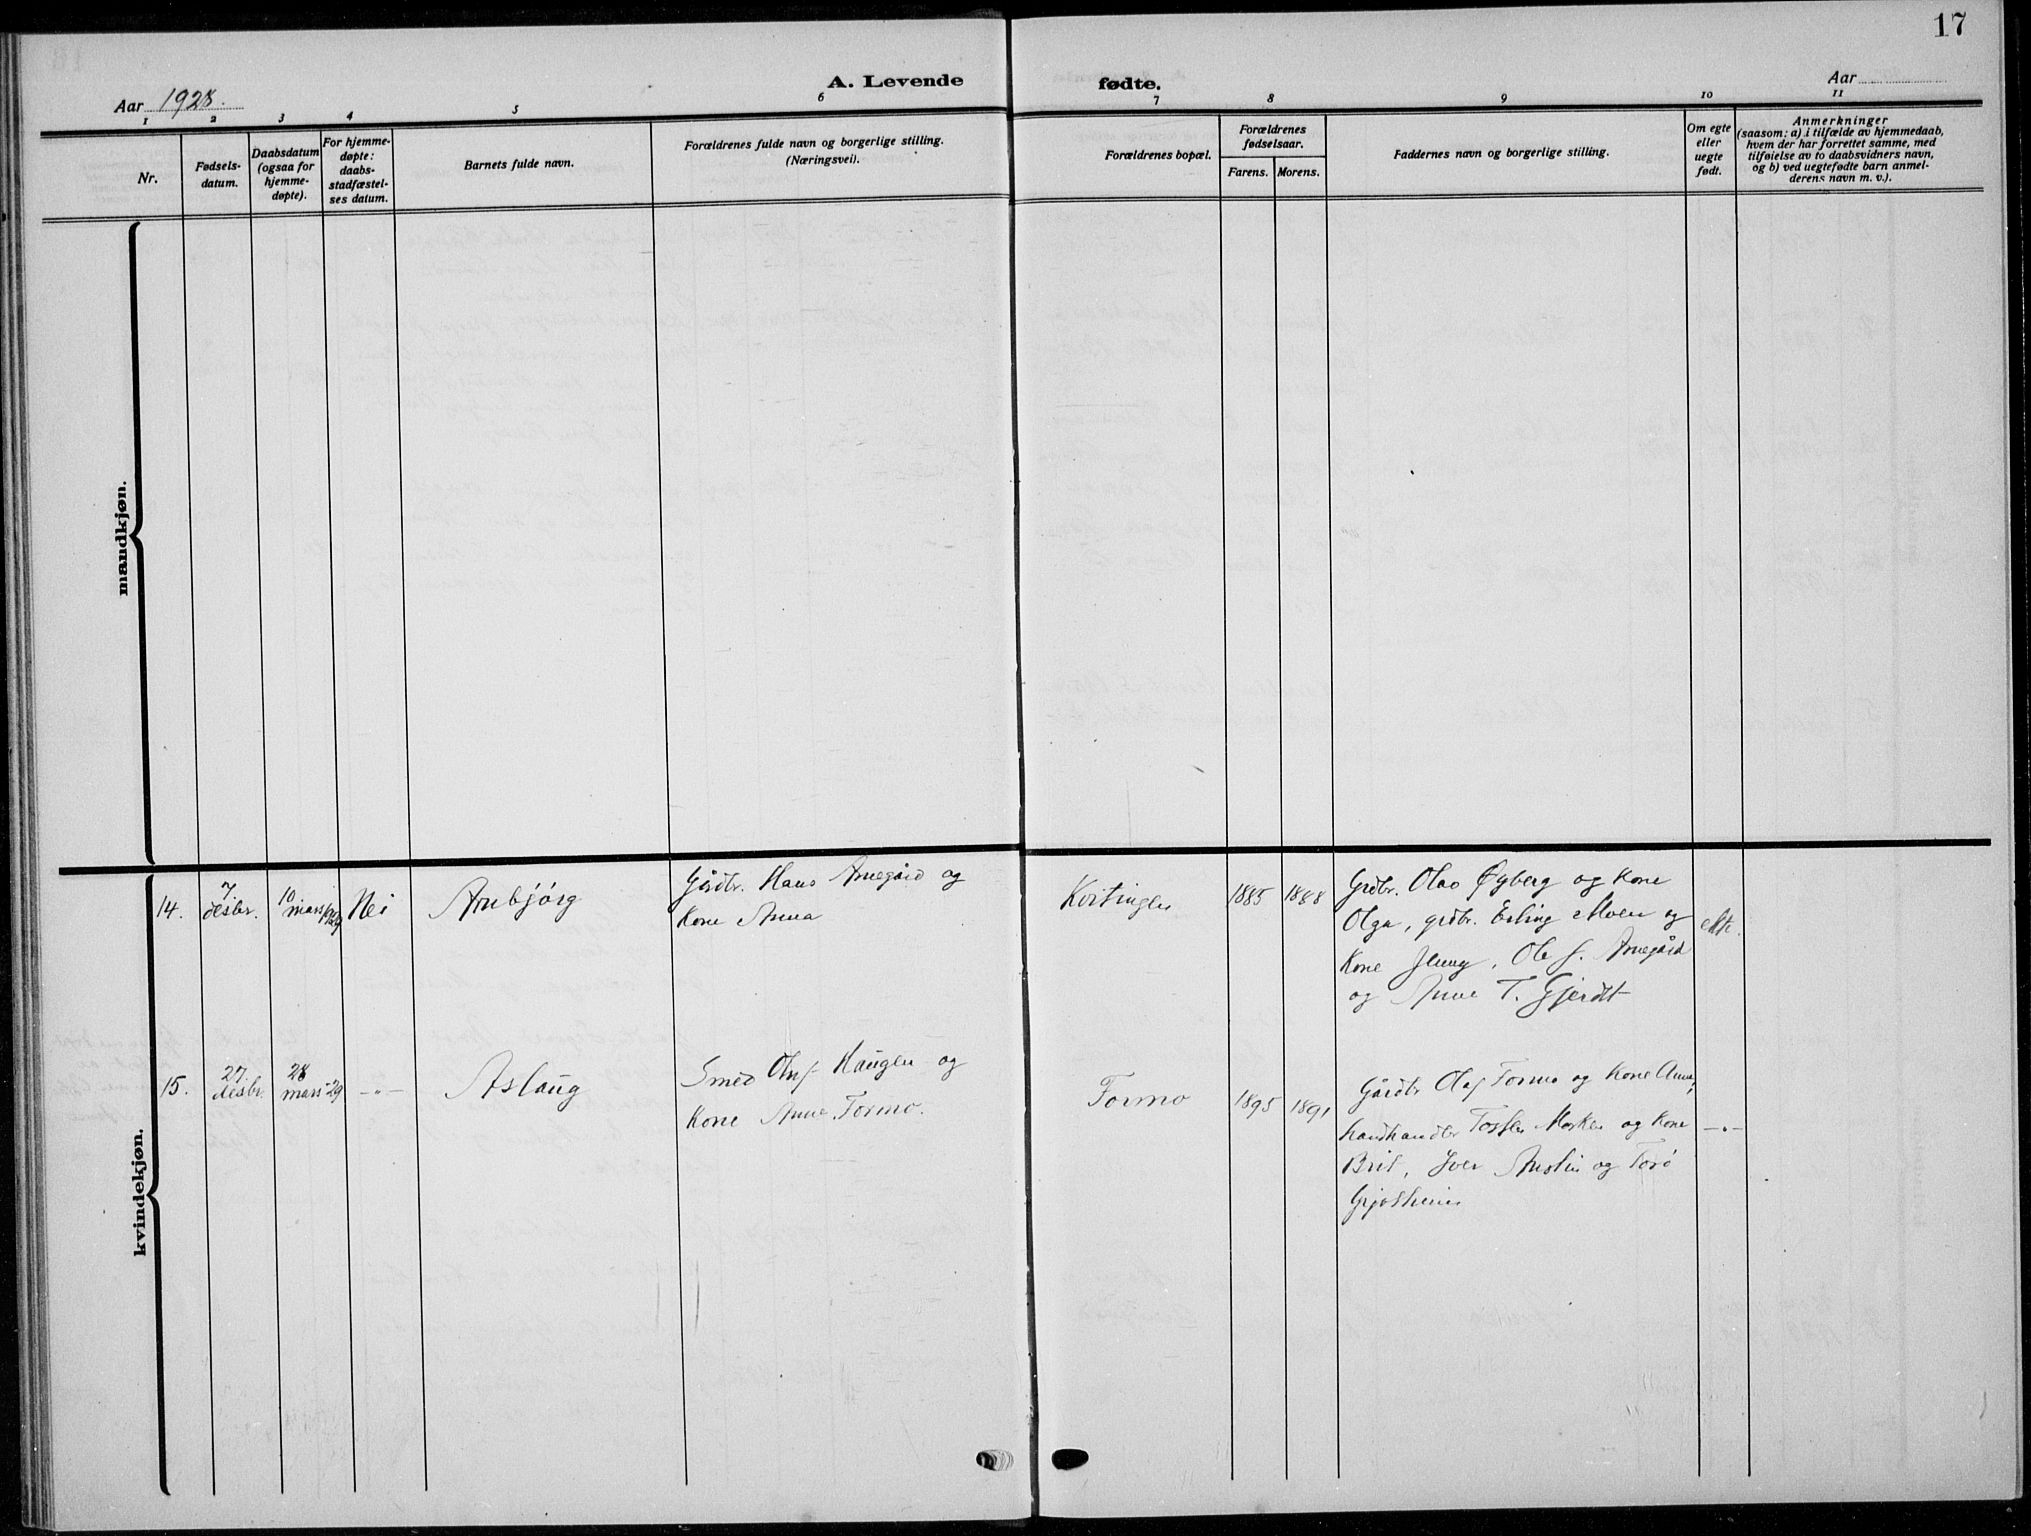 17
A. Levende fødte.
Aar 1928.
Aar
1 2 3 4 5 6 7 8 9 10 11
Nr.
Fødsels-
datum.
Daabsdatum
(ogsaa for
hjemme-
døpte).
For hjemme-
døpte:
daabs-
stadfæstel-
ses datum.
Barnets fulde navn.
Forældrenes fulde navn og borgerlige stilling.
(Næringsvei).
Forældrenes bopæl.
Forældrenes
fødselsaar.
Farens. Morens.
Faddernes navn og borgerlige stilling.
Om egte
eller
uegte
født.
Anmerkninger
(saasom: a) i tilfælde av hjemmedaab,
hvem der har forrettet samme, med
tilføielse av to daabsvidners navn,
og b) ved uegtefødte barn anmel-
derens navn m. v.).
mandkjøn.
kvindekjøn.
14.
7
desbr.
10
mars 1929
Nei
Arnbjørg
Gårdbr. Hans Arnegård og
Kone Anna
1885
1888
Grdbr. Olav Øyberg og Kone
Olga, grdbr. Erling Moen og
Kone Jenny, Ole J. Arnegård
og Anne T. Gjerdt
ekte.
15.
27
desbr.
28
mars -29
-"-
Aslaug
Smed Oluf Haugen og
Kone Anne Formo.
Formo
1895
1891
Gårdbr Olaf Formo og Kone Anna,
landhandler Mosken og Kone
Brit, Iver og Torø
-"-